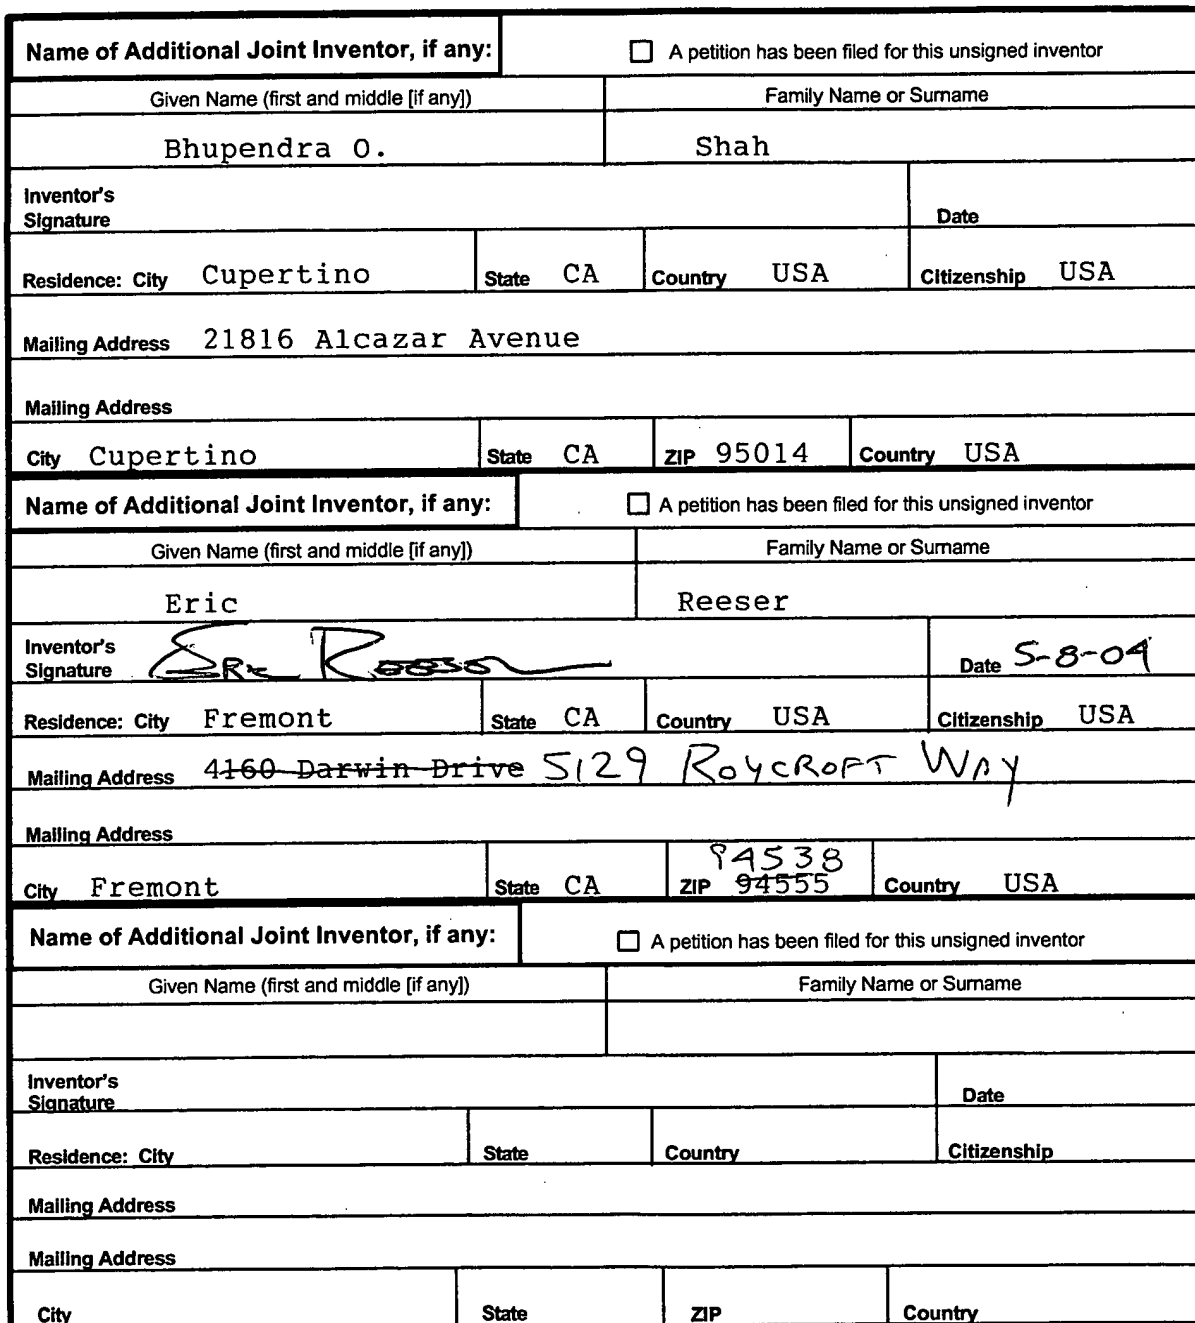 Name of Additional Joint Inventor, if any: ☐ A petition has been filed for this unsigned inventor
Given Name (first and middle [if any]) Family Name or Surname
Bhupendra O. Shah
Inventor's
Signature Date
Residence: City Cupertino State CA Country USA Citizenship USA
Mailing Address 21816 Alcazar Avenue
Mailing Address
City Cupertino State CA ZIP 95014 Country USA
Name of Additional Joint Inventor, if any: ☐ A petition has been filed for this unsigned inventor
Given Name (first and middle [if any]) Family Name or Surname
Eric Reeser
Inventor's
Signature Eric Reeser Date 5-8-04
Residence: City Fremont State CA Country USA Citizenship USA
Mailing Address 4160 Darwin Drive 5129 Roycroft Way
Mailing Address
94538
City Fremont State CA ZIP 94555 Country USA
Name of Additional Joint Inventor, if any: ☐ A petition has been filed for this unsigned inventor
Given Name (first and middle [if any]) Family Name or Surname
Inventor's
Signature Date
Residence: City State Country Citizenship
Mailing Address
Mailing Address
City State ZIP Country